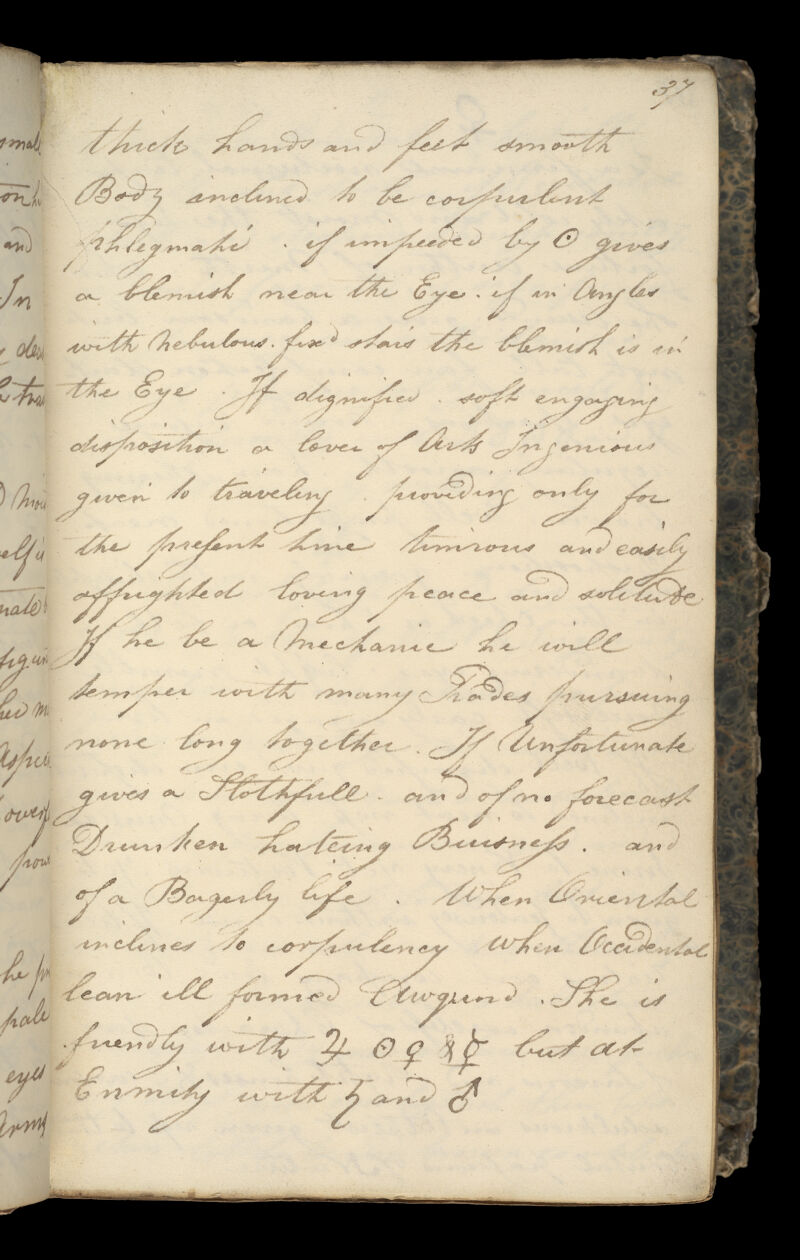 37
thick hands and feet smooth
Body inclined to be corpulent
phlegmatic . if impeeded by ☉ gives
a blemish near the Eye . if in Angles
with Nebulous . fixd stars the blemish is in
the Eye . If dignified . soft engaging
disposition a lover of Arts Ingenious
given to traveling . providing only for
the present time timirous and easily
affrighted loving peace and solitude
If he be a Mechanic he will
temper with many Trades pursuing
none long together . If Unfortunate
gives a Slothfull . and of no forecast
Drunken hateing Buisness . and
of a Bagerly life . When Oriental
inclines to corpulency When Occidental
lean ill formed . She is
friendly with ♃ ☉ ♀ & ☿ but at
Enmity with ♄ and ♂
small
and
In
pale
eyes
Arms